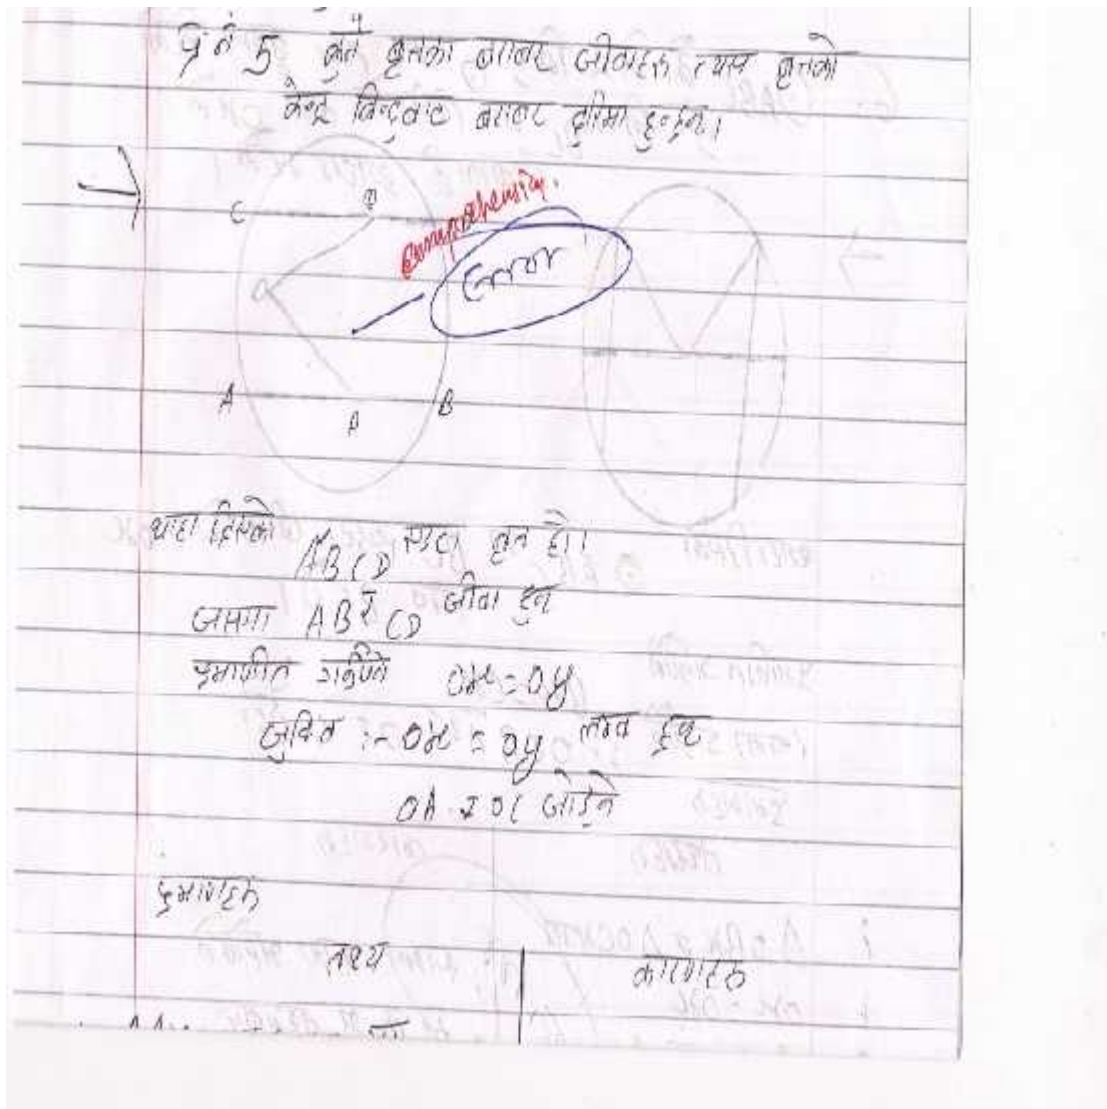 प्र.नं 5 कुनै वृतका बराबर जीवाहरु त्यस वृतको
केन्द्र बिन्दुबाट बराबर दुरिमा हुन्छन्।
C
Comprehensive.
Error
O
A
B
P
थाहा दिएको ABCD एउटा वृत हो।
जसमा AB र CD जीवा हुन्
प्रमाणित गर्नुपर्ने ox = oy
जुक्ति :- ox = oy लम्ब हुन्
OA र OC जोड्ने
प्रमाणहरु
तथ्य
कारणहरु